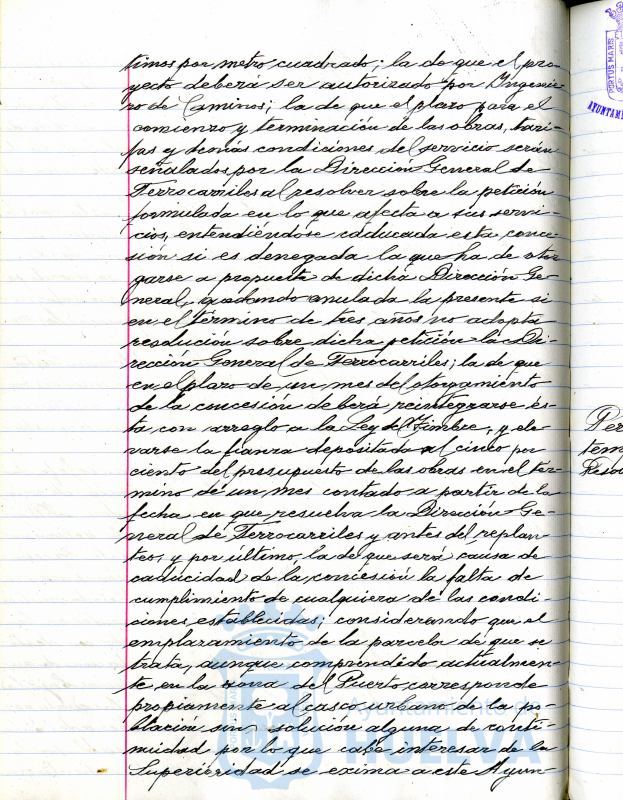 timos por metro cuadrado; la de que el pro-
yecto deberá ser autorizado por Ingenie-
ro de Caminos; la de que el plazo para el
comienzo y terminación de las obras, tari-
fas y demás condiciones del servicio serán
señalados por la Dirección General de
Ferrocarriles al resolver sobre la petición
formulada en lo que afecta a sus servi-
cios, entendiéndose caducada esta conce-
sión si es denegada la que ha de otor
garse a propuesta de dicha Dirección Ge-
neral, quedando anulada la presente si
en el término de tres años no adopta
resolución sobre dicha petición la Di-
rección General de Ferrocarriles; la de que
en el plazo de un mes del otorgamiento
de la concesión deberá reintegrarse és-
ta con arreglo a la Ley del Timbre, y ele-
varse la fianza depositada al cinco por
ciento del presupuesto de las obras en el tér-
mino de un mes contado a partir de la
fecha en que resuelva la Dirección Ge-
neral de Ferrocarriles y antes del replan-
teo, y por último, la de que será causa de
caducidad de la concesión la falta de
cumplimiento de cualquiera de las condi-
ciones establecidas; considerando que el
emplazamiento de la parcela de que se
trata, aunque comprendido actualmen-
te en la zona del Puerto, corresponde
propiamente al casco urbano de la po-
blación sin solución alguna de conti-
nuidad por lo que cabe interesar de la
Superioridad se exima a este Ayun-
PORTUS MARIS
AYUNTAMI
Per
tem
Resol
Ayuntamiento de
HUELVA